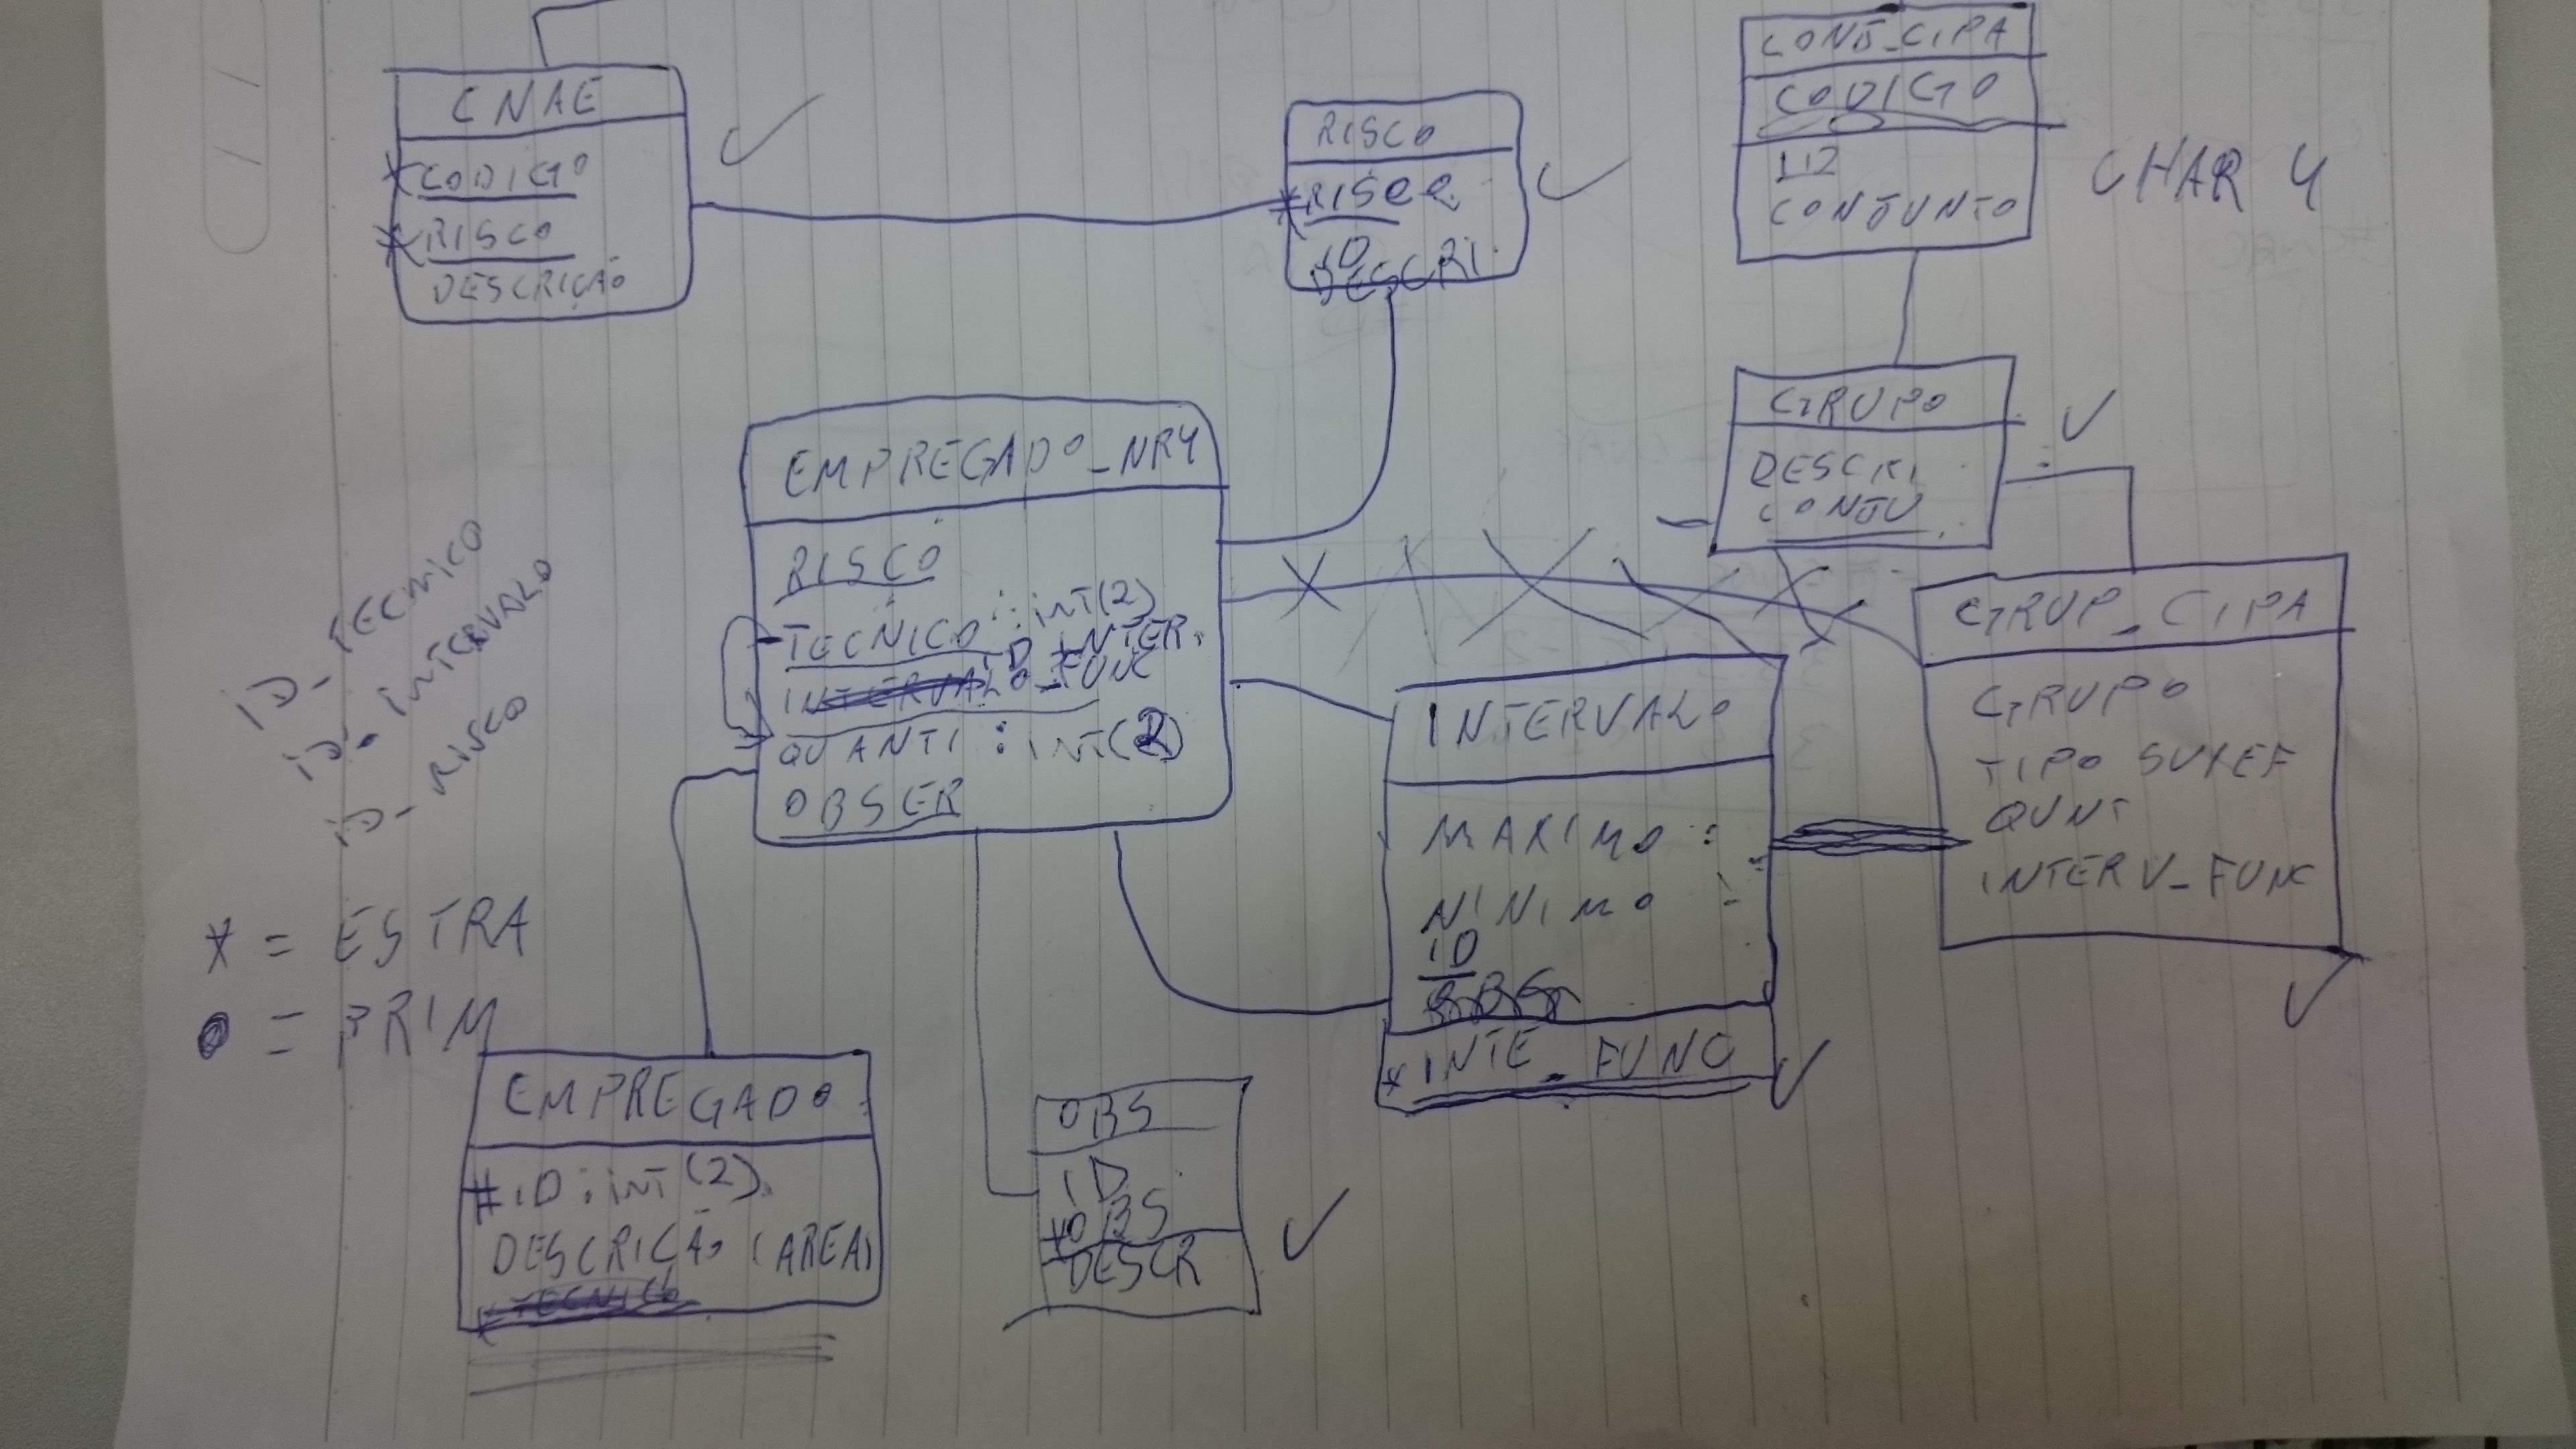 CNAE
*CODIGO
*RISCO
DESCRIÇÃO
RISCO
*RISCO
ID
DESCRI.
CONJ_CIPA
CODIGO
ID
CONJUNTO
CHAR 4
GRUPO
DESCRI
CONJU
EMPREGADO_NR4
RISCO
TECNICO : INT(2)
ID INTER.
INTERVALO_FUNC
QUANTI : INT(2)
OBSER
ID-TECNICO
ID-INTERVALO
ID-RISCO
INTERVALO
MAXIMO :
MINIMO :
ID
*INTE_FUNC
GRUP_CIPA
GRUPO
TIPO
QUNT
INTERV_FUNC
* = ESTRA
● = PRIM
EMPREGADO
#ID : INT(2)
DESCRIÇÃO (AREA)
TECNICO
OBS
ID
*OBS
DESCR